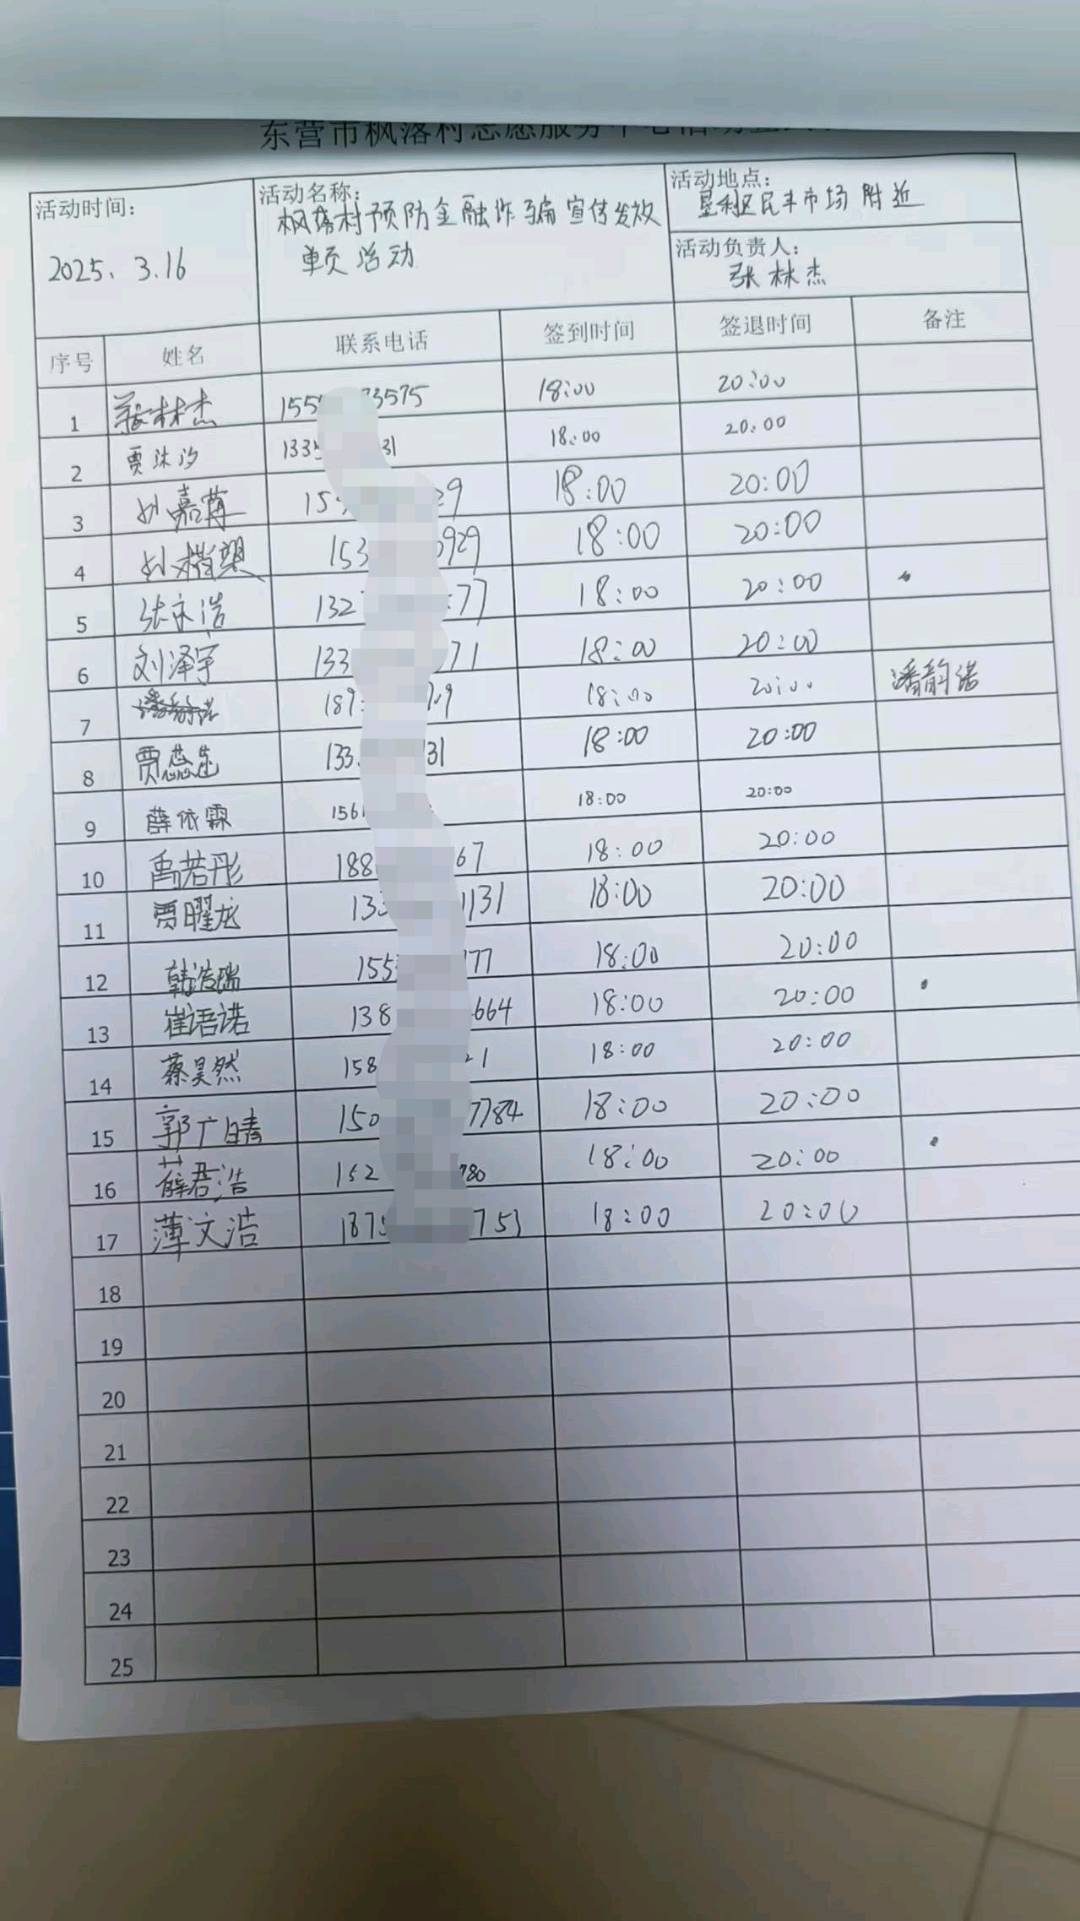 东营市枫落村志愿服务中心活动
活动时间：
2025、3.16
活动名称：
枫落村预防金融诈骗宣传发放
单页活动
活动地点：
垦利区民丰市场附近
活动负责人：
张林杰
序号 姓名 联系电话 签到时间 签退时间 备注
1 张林杰 155 73575 18:00 20:00
2 贾沐汐 133 31 18:00 20:00
3 孙嘉蓴 15 29 18:00 20:00
4 孙 153 929 18:00 20:00
5 张亦浩 132 77 18:00 20:00
6 刘泽宇 133 71 18:00 20:00
7 189 09 18:00 20:00 潘韵诺
8 贾蕊 133 31 18:00 20:00
9 薛依霖 156 18:00 20:00
10 禹若彤 188 67 18:00 20:00
11 贾曜龙 133 1131 18:00 20:00
12 韩浩瑞 155 77 18:00 20:00
13 崔语诺 138 664 18:00 20:00
14 蔡昊然 158 21 18:00 20:00
15 郭广晴 150 7784 18:00 20:00
16 薛君浩 152 780 18:00 20:00
17 薄文浩 187 753 18:00 20:00
18
19
20
21
22
23
24
25